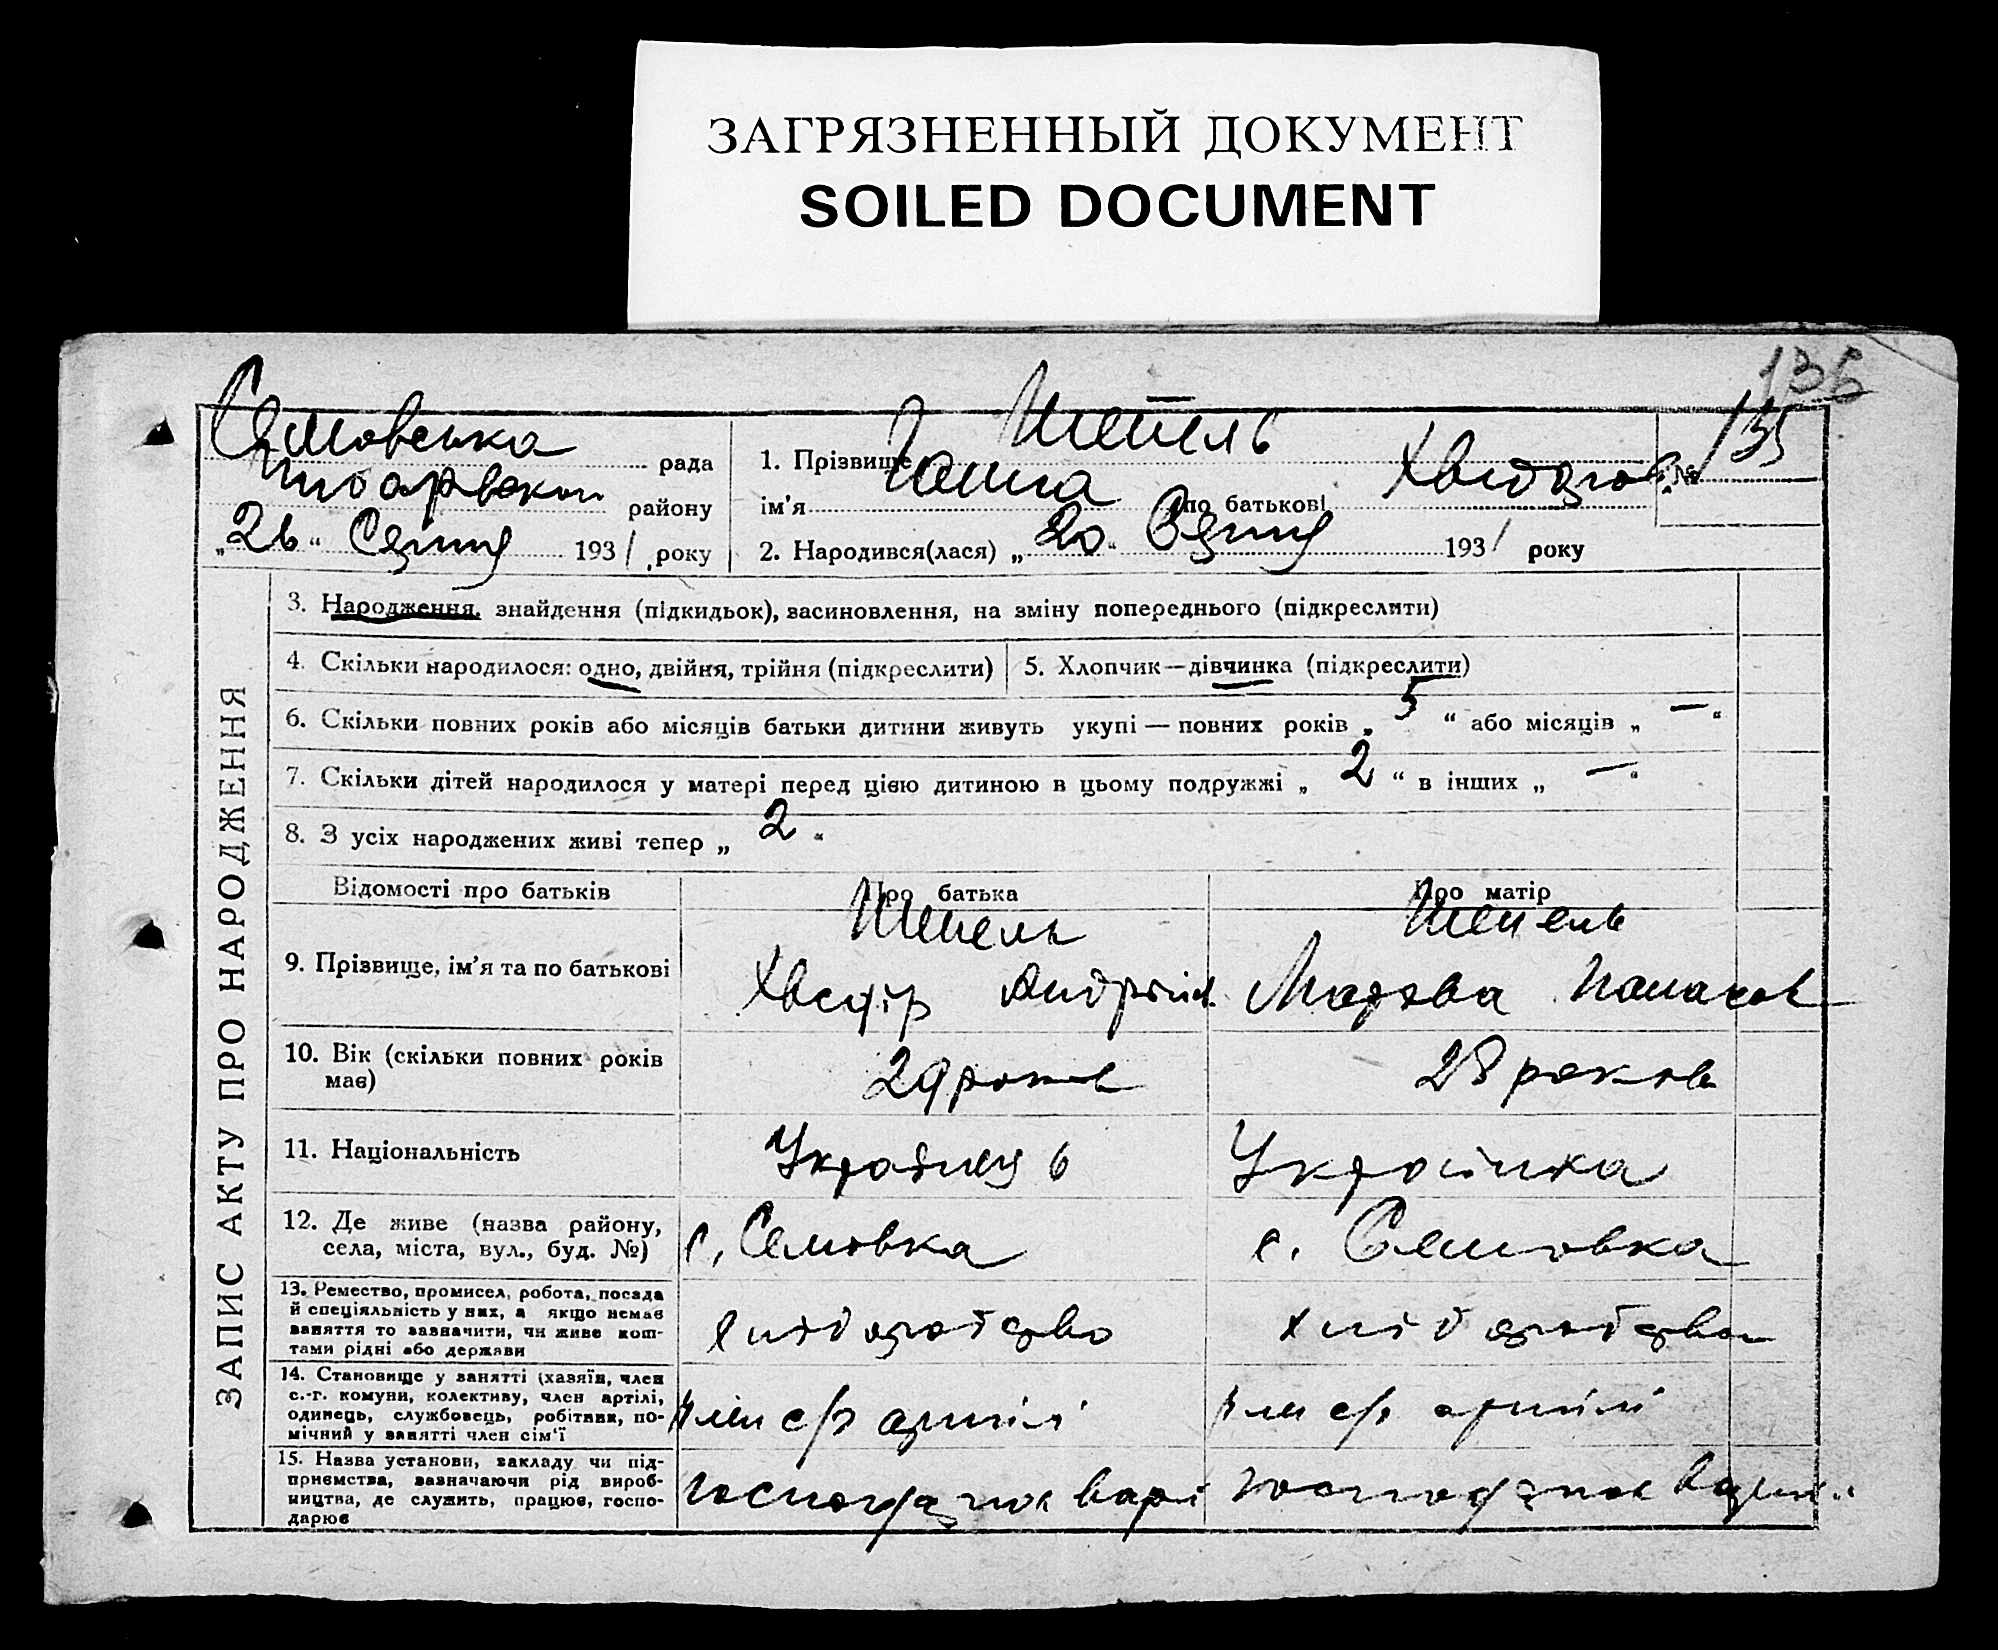 ЗАГРЯЗНЕННЫЙ ДОКУМЕНТ
SOILED DOCUMENT
136
рада
району
„26“ 1931 року
1. Прізвище Шепель
ім'я Ганна по батькові
№ 135
2. Народився(лася) „20“ 1931 року
ЗАПИС АКТУ ПРО НАРОДЖЕННЯ
3. Народження, знайдення (підкидьок), засиновлення, на зміну попереднього (підкреслити)
4. Скільки народилося: одно, двійня, трійня (підкреслити)
5. Хлопчик — дівчинка (підкреслити)
6. Скільки повних років або місяців батьки дитини живуть укупі — повних років „5“ або місяців „—“
7. Скільки дітей народилося у матері перед цією дитиною в цьому подружжі „2“ в інших „—“
8. З усіх народжених живі тепер „2“
Відомості про батьків
Про батька
Про матір
9. Прізвище, ім'я та по батькові
Шепель
Шепель
10. Вік (скільки повних років
має)
29 років
28 років
11. Національність
Українка
12. Де живе (назва району,
села, міста, вул., буд. №)
с. Семовка
с. Семовка
13. Ремество, промисел, робота, посада
й спеціяльність у них, а якщо немає
заняття то зазначити, чи живе кош-
тами рідні або держави
хліборобство
14. Становище у занятті (хазяїн, член
с.-г. комуни, колективу, член артілі,
одинець, службовець, робітник, по-
мічний у занятті член сім'ї
член с/г артілі
член с/г артілі
15. Назва установи, закладу чи під-
приємства, зазначаючи рід вироб-
ництва, де служить, працює, госпо-
дарює